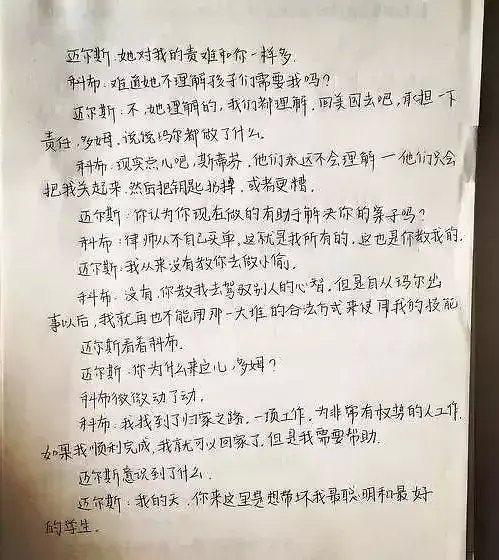 迈尔斯:她对我的责难和你一样多.
科布:难道她不理解孩子们需要我吗?
迈尔斯:不,她理解的,我们都理解,回美国去吧,承担一下
责任,多姆,说说玛尔都做了什么.
科布:现实点儿吧,斯蒂芬,他们永远不会理解一他们只会
把我关起来.然后把钥匙扔掉,或者更糟.
迈尔斯:你认为你现在做的有助于解决你的案子吗?
科布:律师从不自己买单,这就是我所有的,这也是你教我的.
迈尔斯:我从来没有教你去做小偷.
科布:没有,你教我去驾驭别人的心智,但是自从玛尔出
事以后,我就再也不能用那一大堆的合法方式来使用我的技能
迈尔斯看着科布.
迈尔斯:你为什么来这儿,多姆?
科布微微动了动.
科布:我找到了归家之路.一项工作,为非常有权势的人工作.
如果我顺利完成,我就可以回家了.但是我需要帮助.
迈尔斯意识到了什么.
迈尔斯:我的天,你来这里是想带坏我最聪明和最好
的学生.